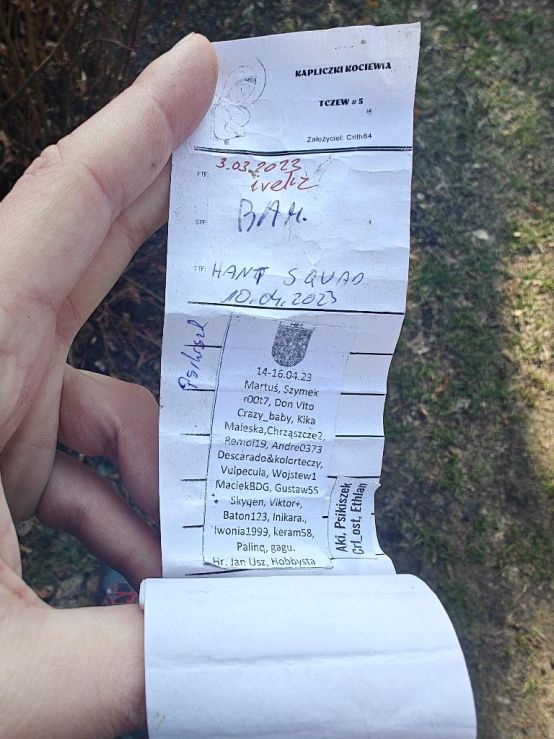 KAPLICZKI KOCIEWIA
TCZEW #5
Założyciel: Crith84
FTF:
3.03.2023
iveliz
STF:
BAM.
TTF:
HANT SQUAD
10.04.2023
14-16.04.23
Martuś, Szymek
r00t7, Don Vito
Crazy_baby, Kika
Maleska,Chrząszcze2,
Remol19, Andre0373
Descarado&kolorteczy,
Vulpecula, Wojstew1
MaciekBDG, Gustaw55
Skyqen, Viktor+,
Baton123, Inikara.,
Iwonia1999, keram58,
Palinc, gagu.
Hr. Jan Usz, Hobbysta
Aki, Psikiszek
Grl_ost, Ethlan